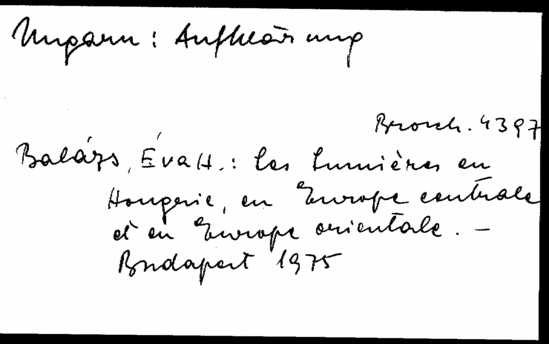 Ungarn: Aufklärung
Brosch. 4397
Balázs, Éva H.: Les Lumières en
Hongrie, en Europe centrale
et en Europe orientale. –
Budapest 1975